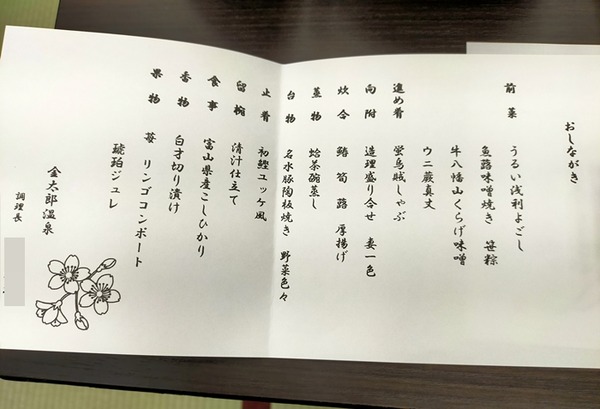 おしながき
前菜 うるい浅利よごし
魚蕗味噌焼き 笹粽
牛八幡山くらげ味噌
ウニ蕨真丈
進め肴 蛍烏賊しゃぶ
向附 造理盛り合せ 妻一色
炊合 鰆 筍 蕗 厚揚げ
蒸物 蛤茶碗蒸し
台物 名水豚陶板焼き 野菜色々
止肴 初鰹ユッケ風
留椀 清汁仕立て
食事 富山県産こしひかり
香物 白才切り漬け
果物 苺 リンゴコンポート
琥珀ジュレ
金太郎温泉
調理長